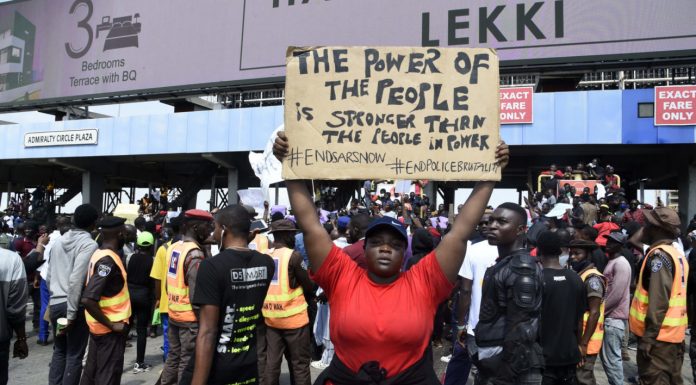 LEKKI
3
Bedrooms
Terrace with BQ
EXACT
FARE
ONLY
EXACT
FARE
ONLY
ADMIRALTY CIRCLE PLAZA
THE POWER OF
THE PEOPLE
is STRONGER THAN
THE PEOPLE IN POWER
#ENDSARSNOW #ENDPOLICEBRUTALITY
DSMART